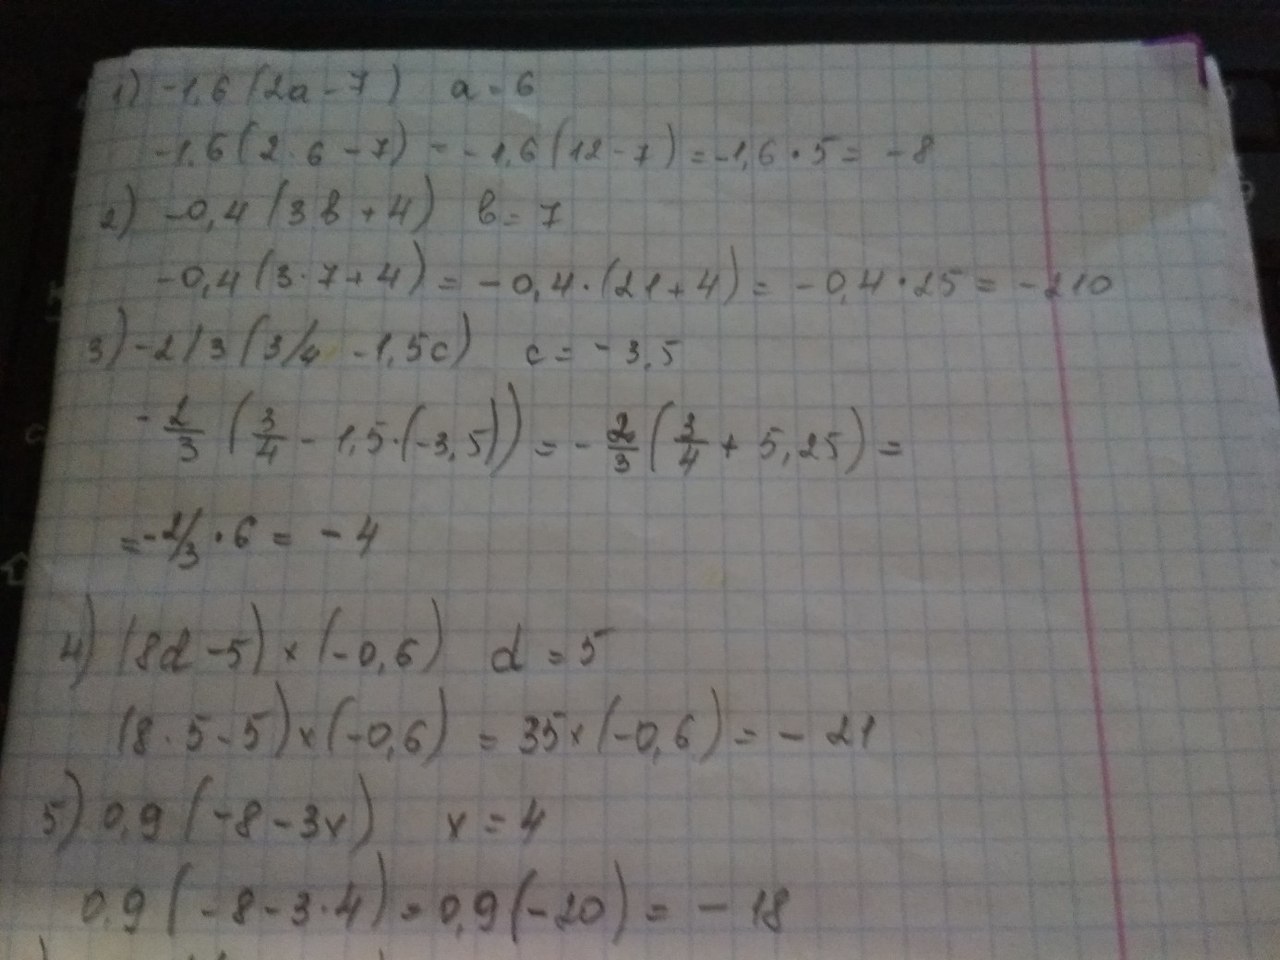 1) -1,6 (2a - 7) a = 6
-1,6 (2·6 - 7) = -1,6 (12 - 7) = -1,6 · 5 = -8
2) -0,4 (3в + 4) в = 7
-0,4 (3·7 + 4) = -0,4 · (21 + 4) = -0,4 · 25 = -10
3) -2/3 (3/4 - 1,5c) c = -3,5
-2/3 (3/4 - 1,5·(-3,5)) = -2/3 (3/4 + 5,25) =
= -2/3 · 6 = -4
4) (8d - 5) × (-0,6) d = 5
(8·5 - 5) × (-0,6) = 35 × (-0,6) = -21
5) 0,9 (-8 - 3x) x = 4
0,9 (-8 - 3·4) = 0,9 (-20) = -18